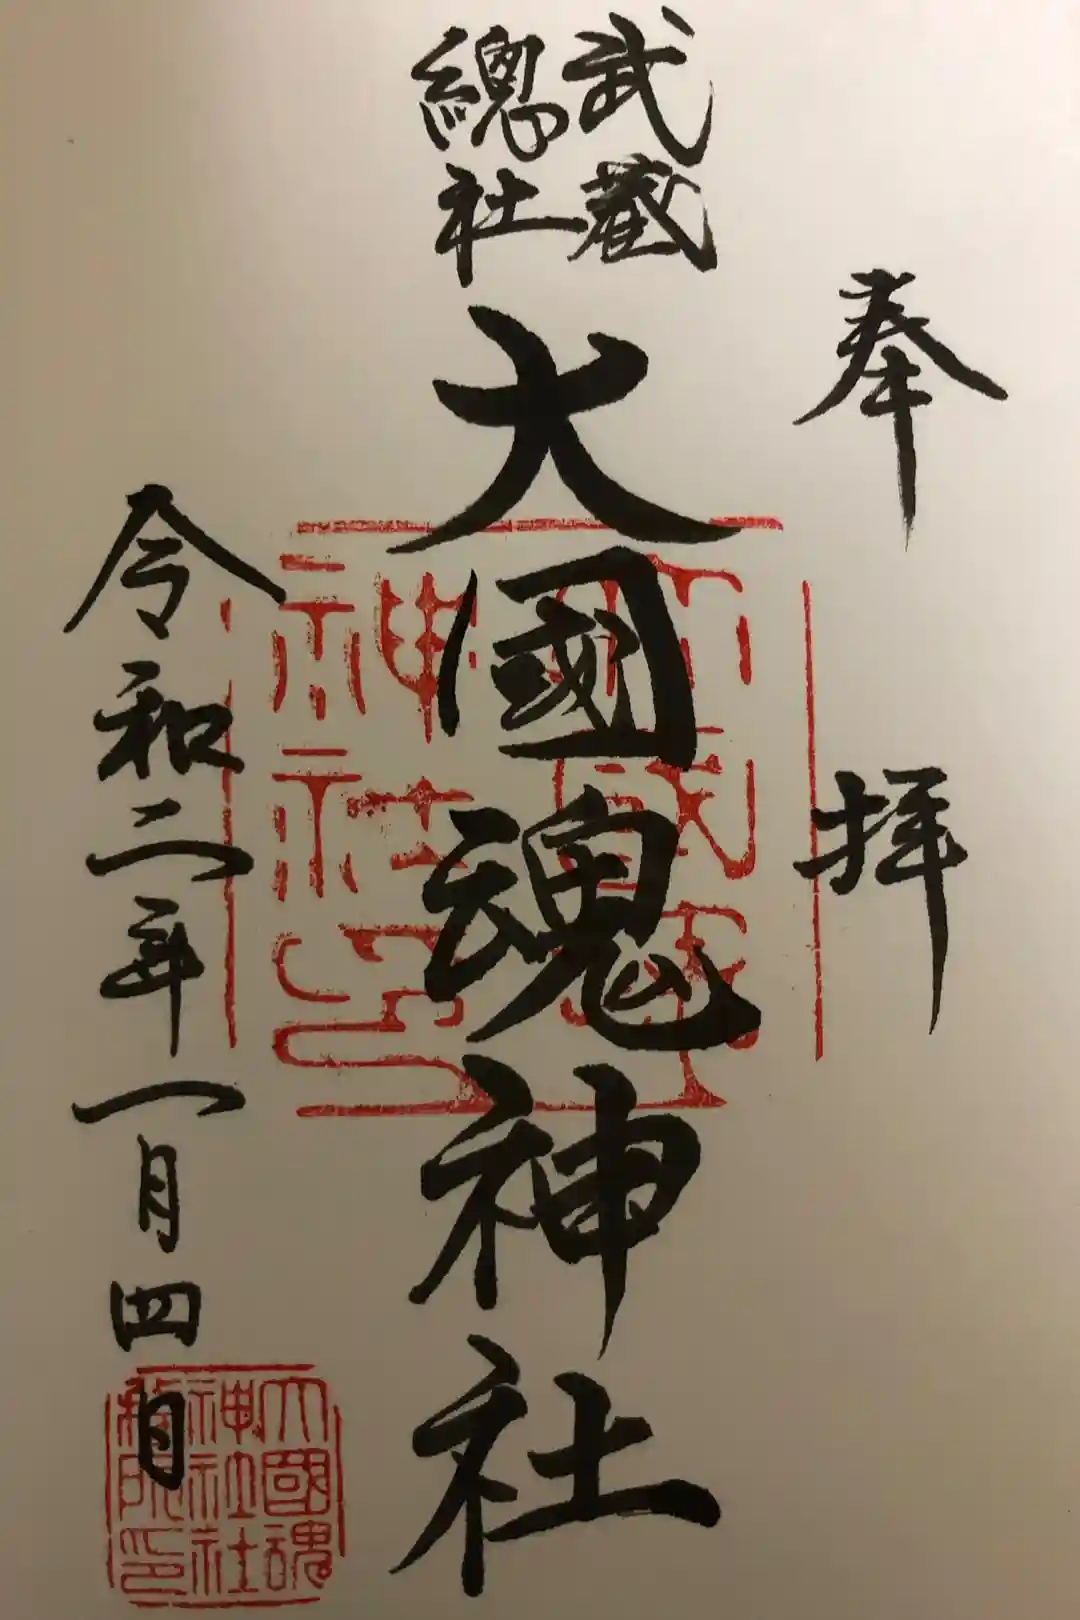 奉拝
武蔵
總社
大國魂神社
令和二年一月四日
大國魂
神社印
大國魂
神社社
務所印